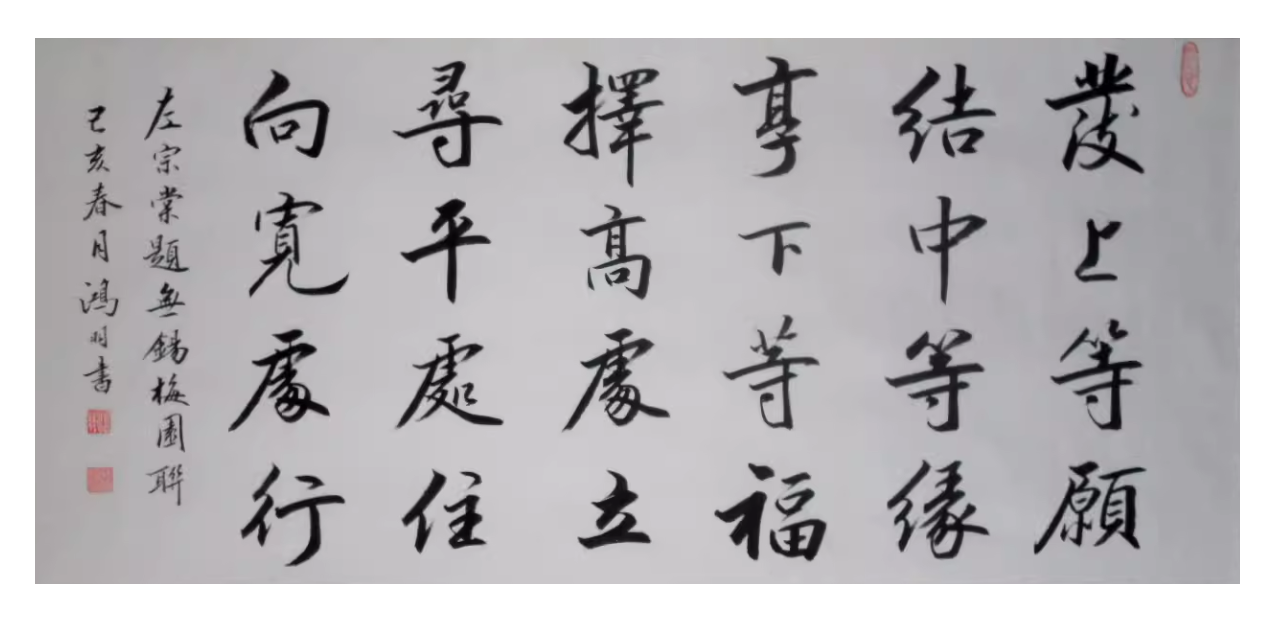 發上等願
結中等緣
享下等福
擇高處立
尋平處住
向寬處行
左宗棠題無錫梅園聯
己亥春月鴻羽書